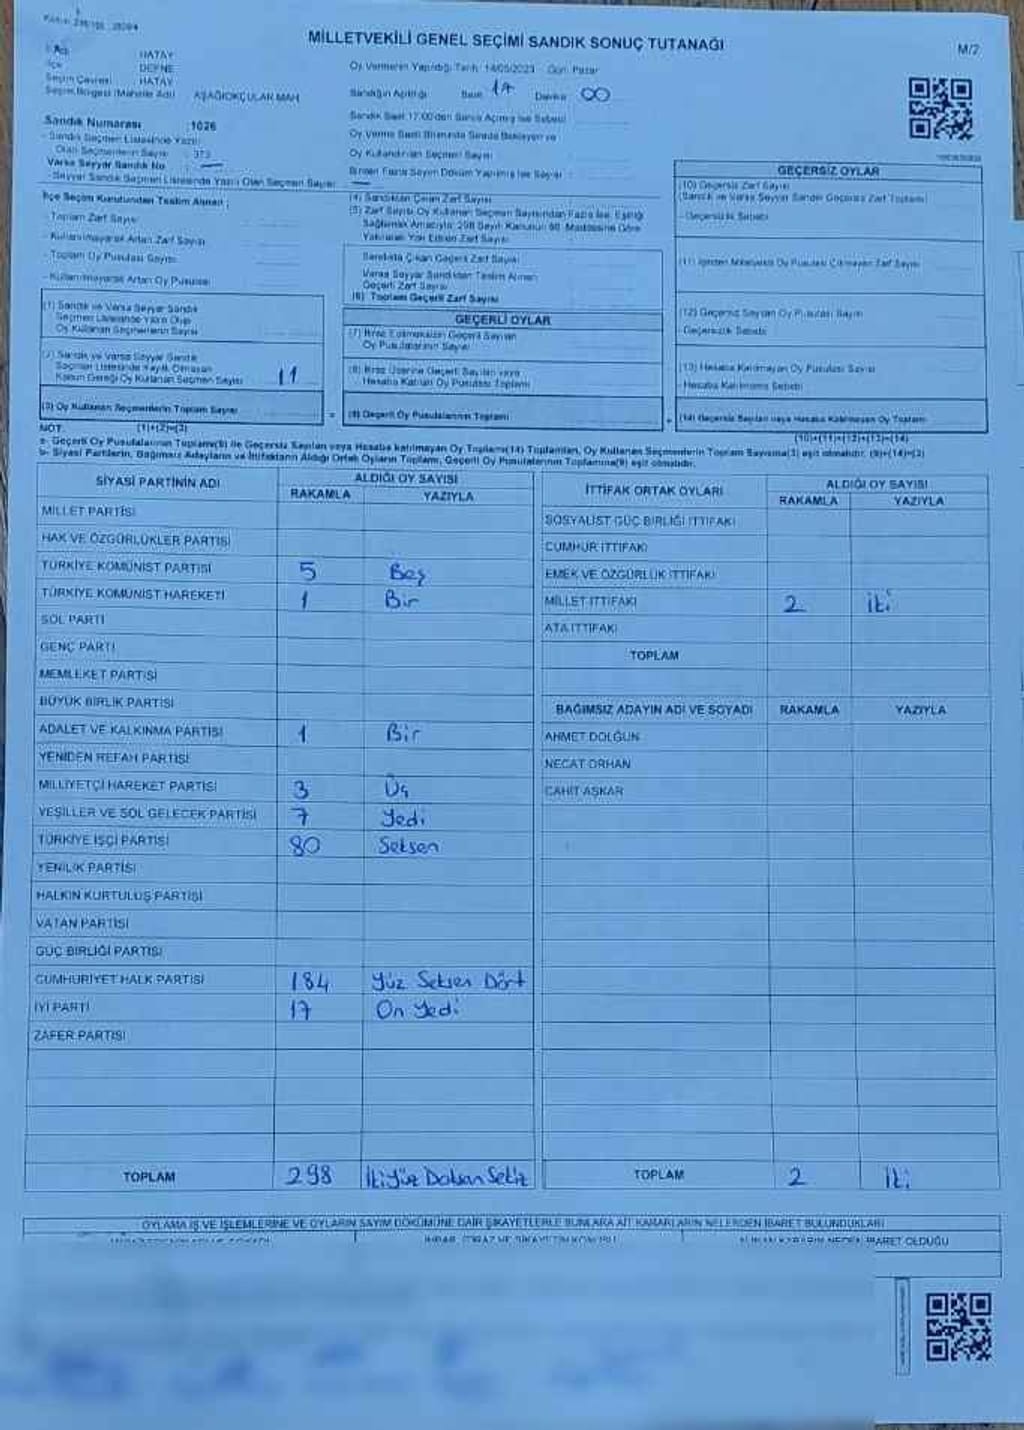 MİLLETVEKİLİ GENEL SEÇİMİ SANDIK SONUÇ TUTANAĞI
M/2
İli HATAY
İlçe DEFNE
Seçim Çevresi HATAY
Seçim Bölgesi (Mahalle Adı) AŞAĞIOKÇULAR MAH
Sandık Numarası :1026
- Sandık Seçmen Listesinde Yazılı
Olan Seçmenlerin Sayısı : 373
Varsa Seyyar Sandık No : —
- Seyyar Sandık Seçmen Listesinde Yazılı Olan Seçmen Sayısı : —
Oy Vermenin Yapıldığı Tarih: 14/05/2023 - Gün: Pazar
Sandığın Açıldığı Saat: 17 Dakika: 00
Sandık Saat 17:00'den Sonra Açılmış İse Sebebi
Oy Verme Saati Bitiminde Sırada Bekleyen ve
Oy Kullandırılan Seçmen Sayısı
Birden Fazla Sayım Döküm Yapılmış İse Sayısı
İlçe Seçim Kurulundan Teslim Alınan ;
- Toplam Zarf Sayısı
- Kullanılmayarak Artan Zarf Sayısı
- Toplam Oy Pusulası Sayısı
- Kullanılmayarak Artan Oy Pusulası
(1) Sandık ve Varsa Seyyar Sandık
Seçmen Listesinde Yazılı Olup
Oy Kullanan Seçmenlerin Sayısı
(2) Sandık ve Varsa Seyyar Sandık
Seçmen Listesinde Kayıtlı Olmayan
Kanun Gereği Oy Kullanan Seçmen Sayısı 11
(3) Oy Kullanan Seçmenlerin Toplam Sayısı
(1)+(2)=(3)
(4) Sandıktan Çıkan Zarf Sayısı
(5) Zarf Sayısı Oy Kullanan Seçmen Sayısından Fazla İse, Eşitliği
Sağlamak Amacıyla 298 Sayılı Kanunun 98. Maddesine Göre
Yakılarak Yok Edilen Zarf Sayısı
Sandıkta Çıkan Geçerli Zarf Sayısı
Varsa Seyyar Sandıktan Teslim Alınan
Geçerli Zarf Sayısı
(6) Toplam Geçerli Zarf Sayısı
GEÇERLİ OYLAR
(7) İtiraz Edilmeksizin Geçerli Sayılan
Oy Pusulalarının Sayısı
(8) İtiraz Üzerine Geçerli Sayılan veya
Hesaba Katılan Oy Pusulası Toplamı
= (9) Geçerli Oy Pusulalarının Toplamı
GEÇERSİZ OYLAR
(10) Geçersiz Zarf Sayısı
(Sandık ve Varsa Seyyar Sandık Geçersiz Zarf Toplamı)
- Geçersizlik Sebebi
(11) İçinden Milletvekili Oy Pusulası Çıkmayan Zarf Sayısı
(12) Geçersiz Sayılan Oy Pusulası Sayısı
- Geçersizlik Sebebi
(13) Hesaba Katılmayan Oy Pusulası Sayısı
- Hesaba Katılmama Sebebi
+ (14) Geçersiz Sayılan veya Hesaba Katılmayan Oy Toplamı
(10)+(11)+(12)+(13)=(14)
NOT:
a- Geçerli Oy Pusulalarının Toplamı(9) ile Geçersiz Sayılan veya Hesaba katılmayan Oy Toplamı(14) Toplamları, Oy Kullanan Seçmenlerin Toplam Sayısına(3) eşit olmalıdır. (9)+(14)=(3)
b- Siyasi Partilerin, Bağımsız Adayların ve İttifakların Aldığı Ortak Oyların Toplamı, Geçerli Oy Pusulalarının Toplamına(9) eşit olmalıdır.
SİYASİ PARTİNİN ADI ALDIĞI OY SAYISI
RAKAMLA YAZIYLA
MİLLET PARTİSİ
HAK VE ÖZGÜRLÜKLER PARTİSİ
TÜRKİYE KOMÜNİST PARTİSİ 5 Beş
TÜRKİYE KOMÜNİST HAREKETİ 1 Bir
SOL PARTİ
GENÇ PARTİ
MEMLEKET PARTİSİ
BÜYÜK BİRLİK PARTİSİ
ADALET VE KALKINMA PARTİSİ 1 Bir
YENİDEN REFAH PARTİSİ
MİLLİYETÇİ HAREKET PARTİSİ 3 Üç
YEŞİLLER VE SOL GELECEK PARTİSİ 7 Yedi
TÜRKİYE İŞÇİ PARTİSİ 80 Seksen
YENİLİK PARTİSİ
HALKIN KURTULUŞ PARTİSİ
VATAN PARTİSİ
GÜÇ BİRLİĞİ PARTİSİ
CUMHURİYET HALK PARTİSİ 184 Yüz Seksen Dört
İYİ PARTİ 17 On Yedi
ZAFER PARTİSİ
TOPLAM 298 İkiYüz Doksan Sekiz
İTTİFAK ORTAK OYLARI ALDIĞI OY SAYISI
RAKAMLA YAZIYLA
SOSYALİST GÜÇ BİRLİĞİ İTTİFAKI
CUMHUR İTTİFAKI
EMEK VE ÖZGÜRLÜK İTTİFAKI
MİLLET İTTİFAKI 2 iki
ATA İTTİFAKI
TOPLAM
BAĞIMSIZ ADAYIN ADI VE SOYADI RAKAMLA YAZIYLA
AHMET DOLGUN
NECAT ORHAN
CAHİT AŞKAR
TOPLAM 2 İki
OYLAMA İŞ VE İŞLEMLERİNE VE OYLARIN SAYIM DÖKÜMÜNE DAİR ŞİKAYETLERLE BUNLARA AİT KARARLARIN NELERDEN İBARET BULUNDUKLARI
İHBAR, İTİRAZ VE ŞİKAYETİN KONUSU
ALINAN KARARIN NEDEN İBARET OLDUĞU